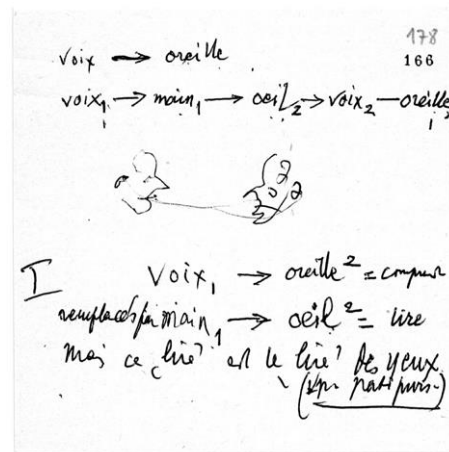 178
166
voix → oreille
voix₁ → main₁ → oeil₂ → voix₂ — oreille₁
I
Voix₁ → oreille² =
remplacés par main₁ → oeil² = lire
mais ce "lire" est le "lire" des yeux